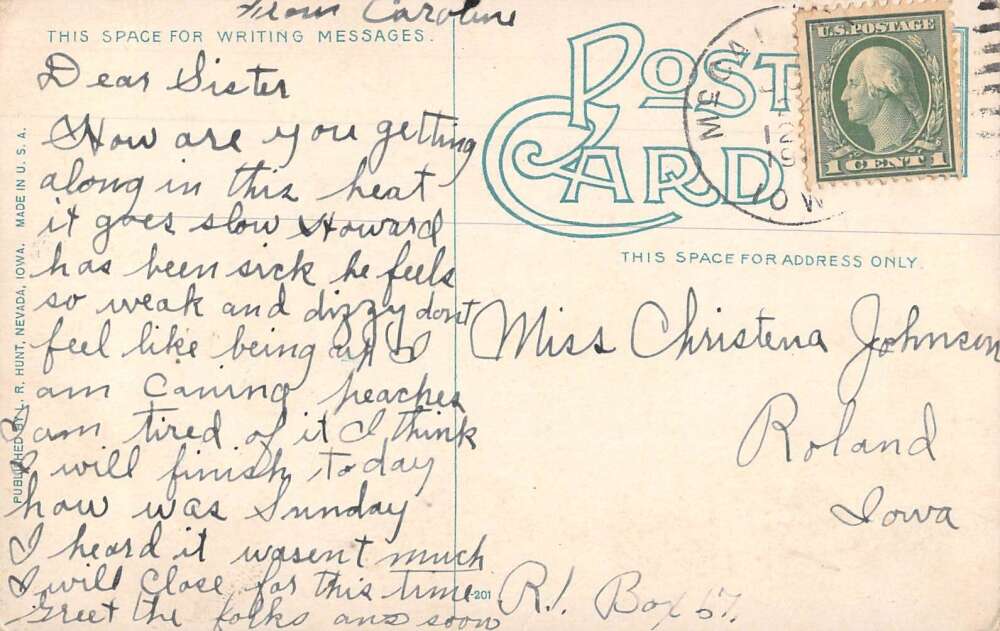 From Caroline
THIS SPACE FOR WRITING MESSAGES.
Dear Sister
How are you getting
along in this heat
it goes slow Howard
has been sick he feels
so weak and dizzy dont
feel like being up I
am Caning peaches
I am tired of it I think
I will finish today
how was Sunday
I heard it wasent much
I will close for this time
greet the folks and soon
PUBLISHED BY L. R. HUNT, NEVADA, IOWA. MADE IN U. S. A.
POST CARD
U.S. POSTAGE
1 CENT 1
THIS SPACE FOR ADDRESS ONLY.
Miss Christena Johnson
Roland
Iowa
R.1. Box 57.
-201